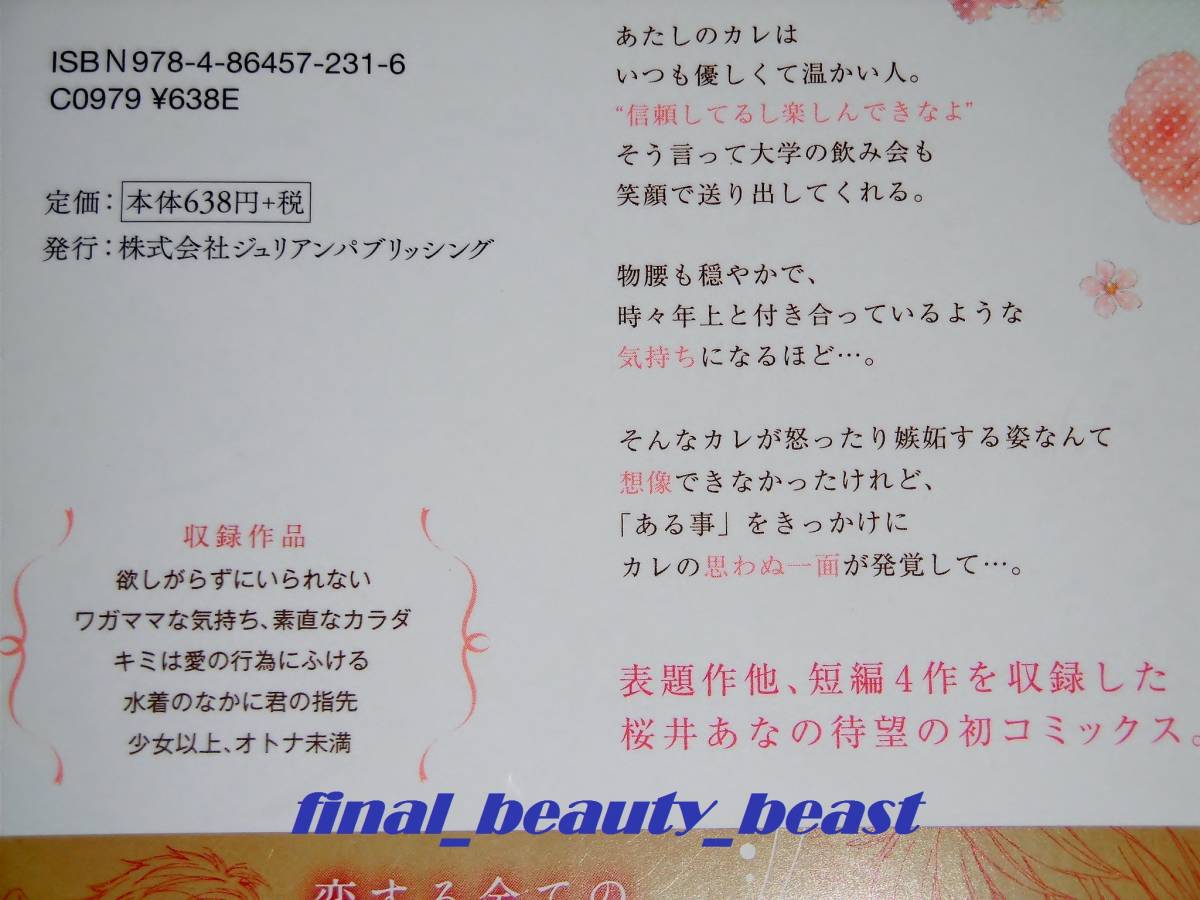 ISBN978-4-86457-231-6
C0979 ¥638E
定価：本体638円+税
発行：株式会社ジュリアンパブリッシング
収録作品
欲しがらずにいられない
ワガママな気持ち、素直なカラダ
キミは愛の行為にふける
水着のなかに君の指先
少女以上、オトナ未満
あたしのカレは
いつも優しくて温かい人。
“信頼してるし楽しんできなよ”
そう言って大学の飲み会も
笑顔で送り出してくれる。
物腰も穏やかで、
時々年上と付き合っているような
気持ちになるほど…。
そんなカレが怒ったり嫉妬する姿なんて
想像できなかったけれど、
「ある事」をきっかけに
カレの思わぬ一面が発覚して…。
表題作他、短編4作を収録した
桜井あなの待望の初コミックス。
final_beauty_beast
恋する全ての